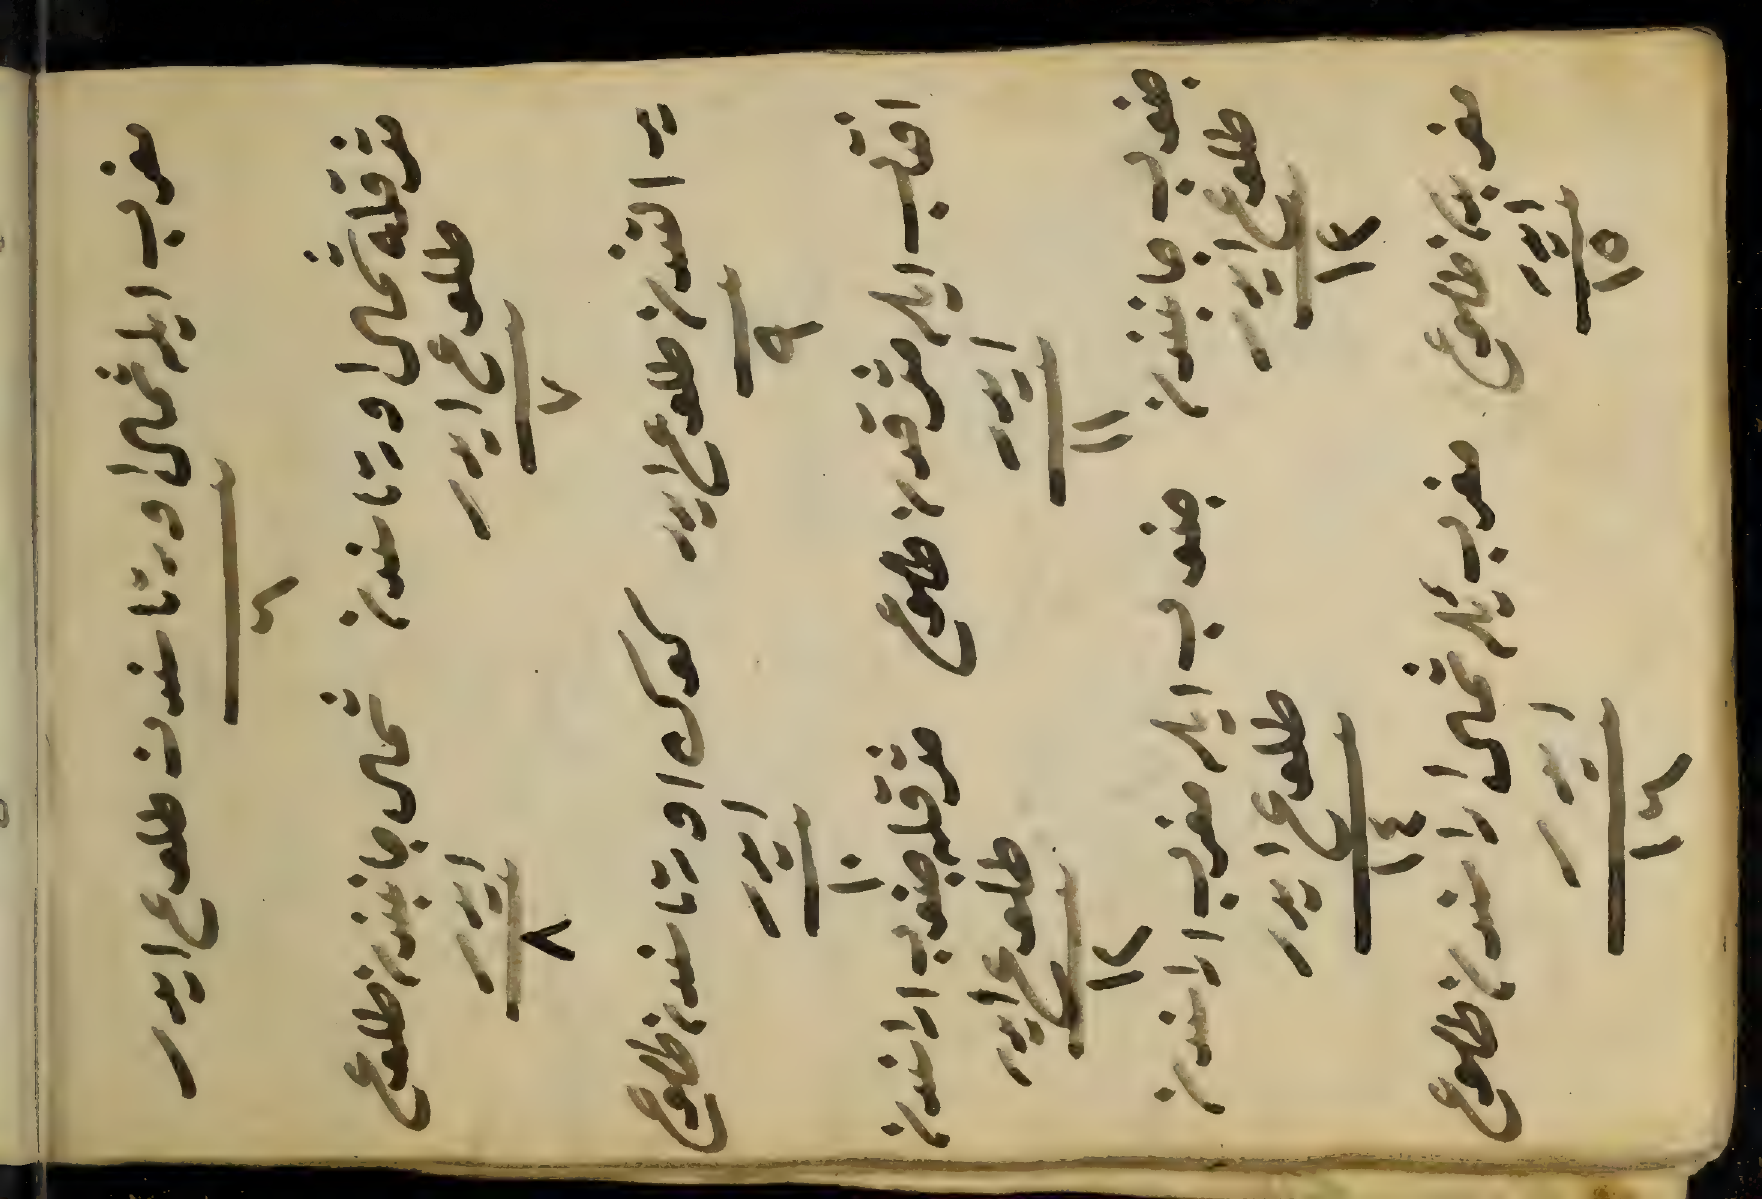 مغرب ايله شمال اورتاسندن طلوع ايدر
٦
مشرقله شمال اورتاسندن
طلوع ايدر
٧
شمال جانبندن طلوع
ايدر
٨
يد الـتندن طلوع ايدر
٩
كوك اورتاسندن طلوع
ايدر
١٠
ايله مشرقدن طلوع
ايدر
١١
مشرقله جنوب اراسندن
طلوع ايدر
١٢
جنوب جانبندن
طلوع ايدر
١٣
جنوب ايله مغرب اراسندن
طلوع ايدر
١٤
مغربدن طلوع
ايدر
١٥
مغرب ايله شمال اراسندن طلوع
ايدر
١٦